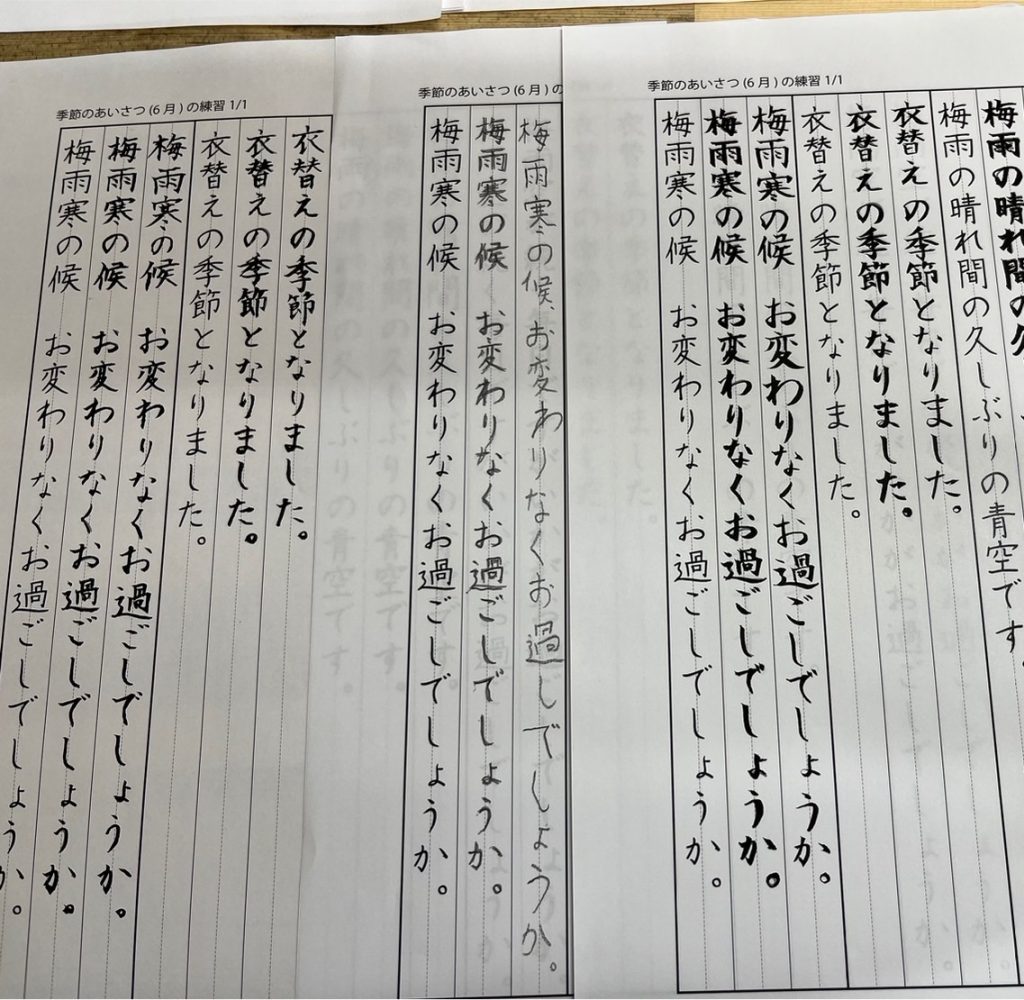 季節のあいさつ(6月)の練習 1/1
梅雨の晴れ間の久
梅雨の晴れ間の久しぶりの青空です。
衣替えの季節となりました。
衣替えの季節となりました。
衣替えの季節となりました。
梅雨寒の候 お変わりなくお過ごしでしょうか。
梅雨寒の候 お変わりなくお過ごしでしょうか。
梅雨寒の候 お変わりなくお過ごしでしょうか。
季節のあいさつ(6月)の
梅雨寒の候、お変わりなくお過しでしょうか。
梅雨寒の候 お変わりなくお過ごしでしょうか。
梅雨寒の候 お変わりなくお過ごしでしょうか。
季節のあいさつ(6月)の練習 1/1
衣替えの季節となりました。
衣替えの季節となりました。
衣替えの季節となりました。
梅雨寒の候 お変わりなくお過ごしでしょうか。
梅雨寒の候 お変わりなくお過ごしでしょうか。
梅雨寒の候 お変わりなくお過ごしでしょうか。